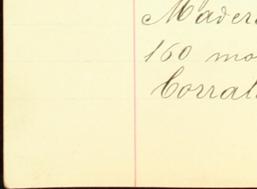 Mader
160 mo
Corral